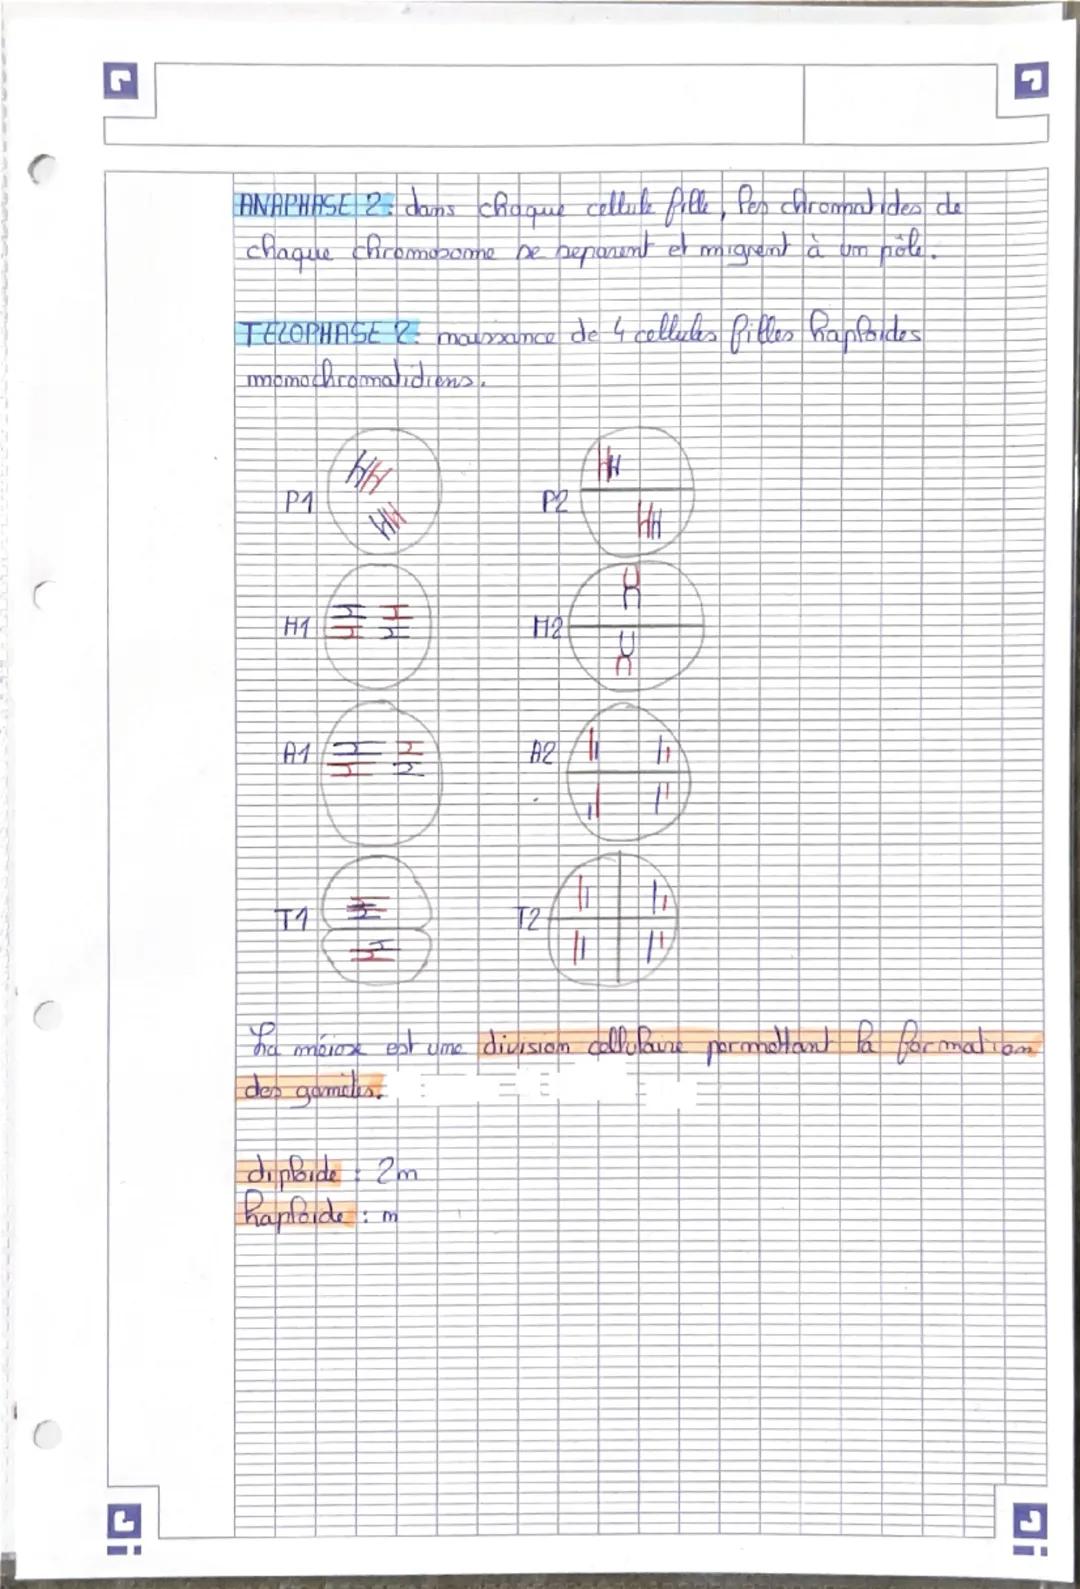 ANAPHASE 2: dans chaque cellule fille, les chromatides de
chaque chromosome se separent et migrent à un pôle.
TELOPHASE 2: naissance de 4 cellules filles haploïdes
monochromatidiens.
P1 P2
M1 M2
A1 A2
T1 T2
La méiose est une division cellulaire permettant la formation
des gamètes.
diploïde : 2n
haploïde : n